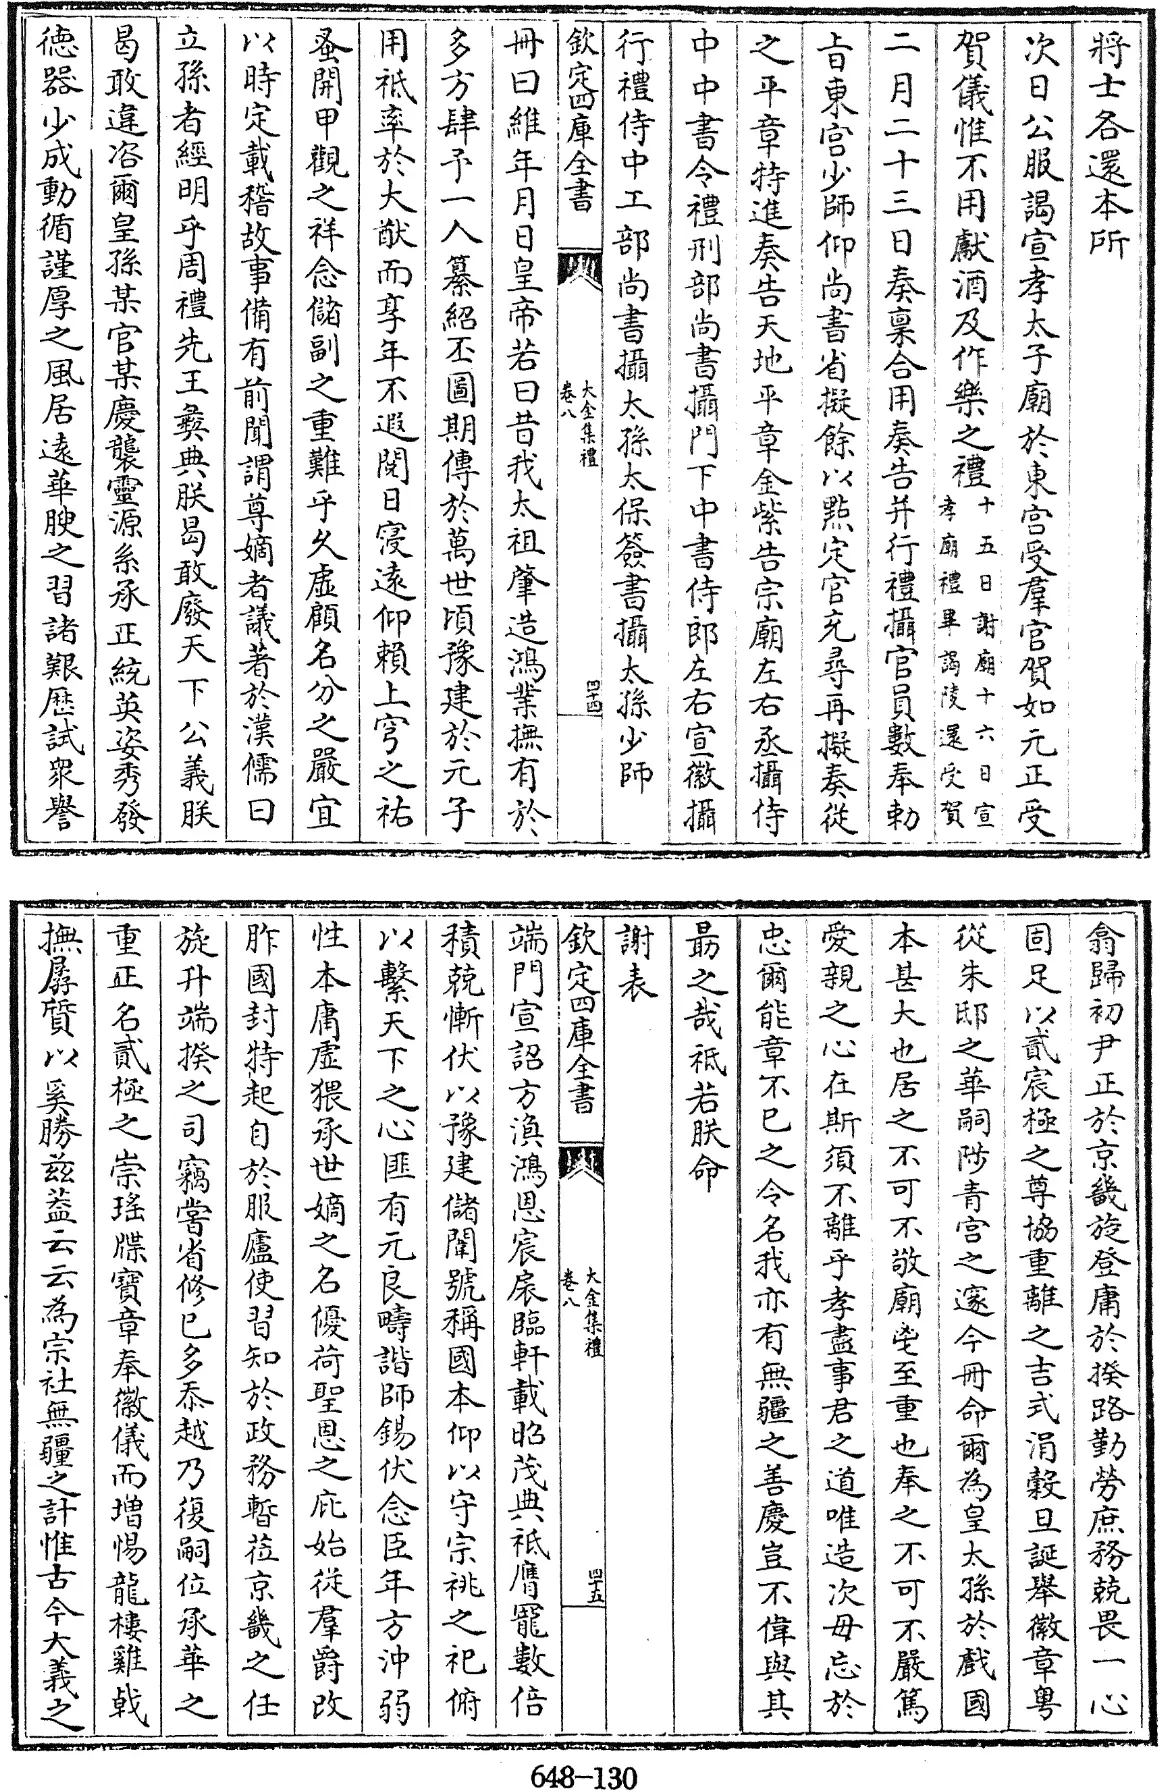 將士各還本所
次日公服謁宣孝太子廟於東宫受羣官賀如元正受
賀儀惟不用獻酒及作樂之禮十五日謝廟十六日宣
孝廟禮畢謁陵還受賀
二月二十三日奏稟合用奏告并行禮攝官員數奉勅
旨東宫少師仰尚書省擬餘以點定官充尋再擬奏從
之平章特進奏告天地平章金紫告宗廟左右丞攝侍
中中書令禮刑部尚書攝門下中書侍郎左右宣徽攝
行禮侍中工部尚書攝太孫太保簽書攝太孫少師
欽定四庫全書
大金集禮
卷八
四十四
冊曰維年月日皇帝若曰昔我太祖肇造鴻業撫有於
多方肆予一人纂紹丕圖期傳於萬世頃豫建於元子
用祗率於大猷而享年不遐閱日寖遠仰賴上穹之祐
蚤開甲觀之祥念儲副之重難乎久虛顧名分之嚴宜
以時定載稽故事備有前聞謂尊嫡者議著於漢儒曰
立孫者經明乎周禮先王彝典朕曷敢廢天下公義朕
曷敢違咨爾皇孫某官某慶襲靈源系承正統英姿秀發
德器少成動循謹厚之風居遠華腴之習諸艱歷試衆譽
翕歸初尹正於京畿旋登庸於揆路勤勞庶務兢畏一心
固足以貳宸極之尊協重離之吉式涓穀旦誕舉徽章粤
從朱邸之華嗣陟青宫之邃今冊命爾為皇太孫於戲國
本甚大也居之不可不敬廟鬯至重也奉之不可不嚴篤
愛親之心在斯須不離乎孝盡事君之道唯造次毋忘於
忠爾能章不已之令名我亦有無疆之善慶豈不偉與其
勗之哉祗若朕命
謝表
欽定四庫全書
大金集禮
卷八
四十五
端門宣詔方滇鴻恩宸扆臨軒載昭茂典祗膺寵數倍
積兢慚伏以豫建儲闈號稱國本仰以守宗祧之祀俯
以繫天下之心匪有元良疇諧師錫伏念臣年方沖弱
性本庸虛猥承世嫡之名優荷聖恩之庇始從羣爵改
胙國封特起自於服廬使習知於政務暫莅京畿之任
旋升端揆之司竊嘗省修已多忝越乃復嗣位承華之
重正名貳極之崇瑤牒寶章奉徽儀而增惕龍樓雞戟
撫孱質以奚勝兹蓋云云為宗社無疆之計惟古今大義之
648-130